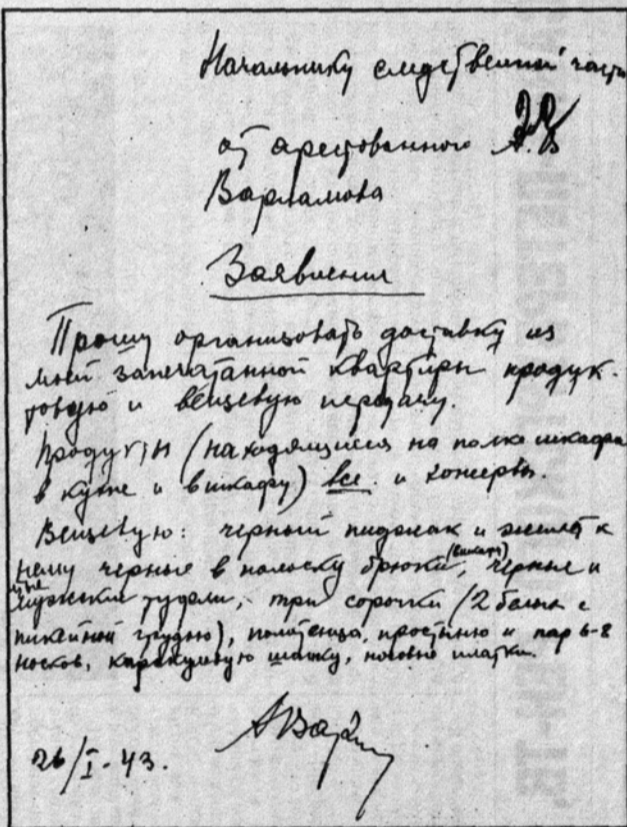 Начальнику следственной части
от арестованного А.В.
Варламова
Заявление
Прошу организовать доставку из
моей запечатанной квартиры продук-
товую и вещевую передачу.
Продукты (находящиеся на полке шкафа
в кухне и в шкафу) все и консервы.
Вещевую: черный пиджак и жилет к
нему черные в полоску брюки (в шкафу), черные и
туфли, три сорочки (2 белых с
пикейной грудью), полотенца, простыню и пар 6-8
носков, каракулевую шапку, носовые платки.
АВар
26/I-43.